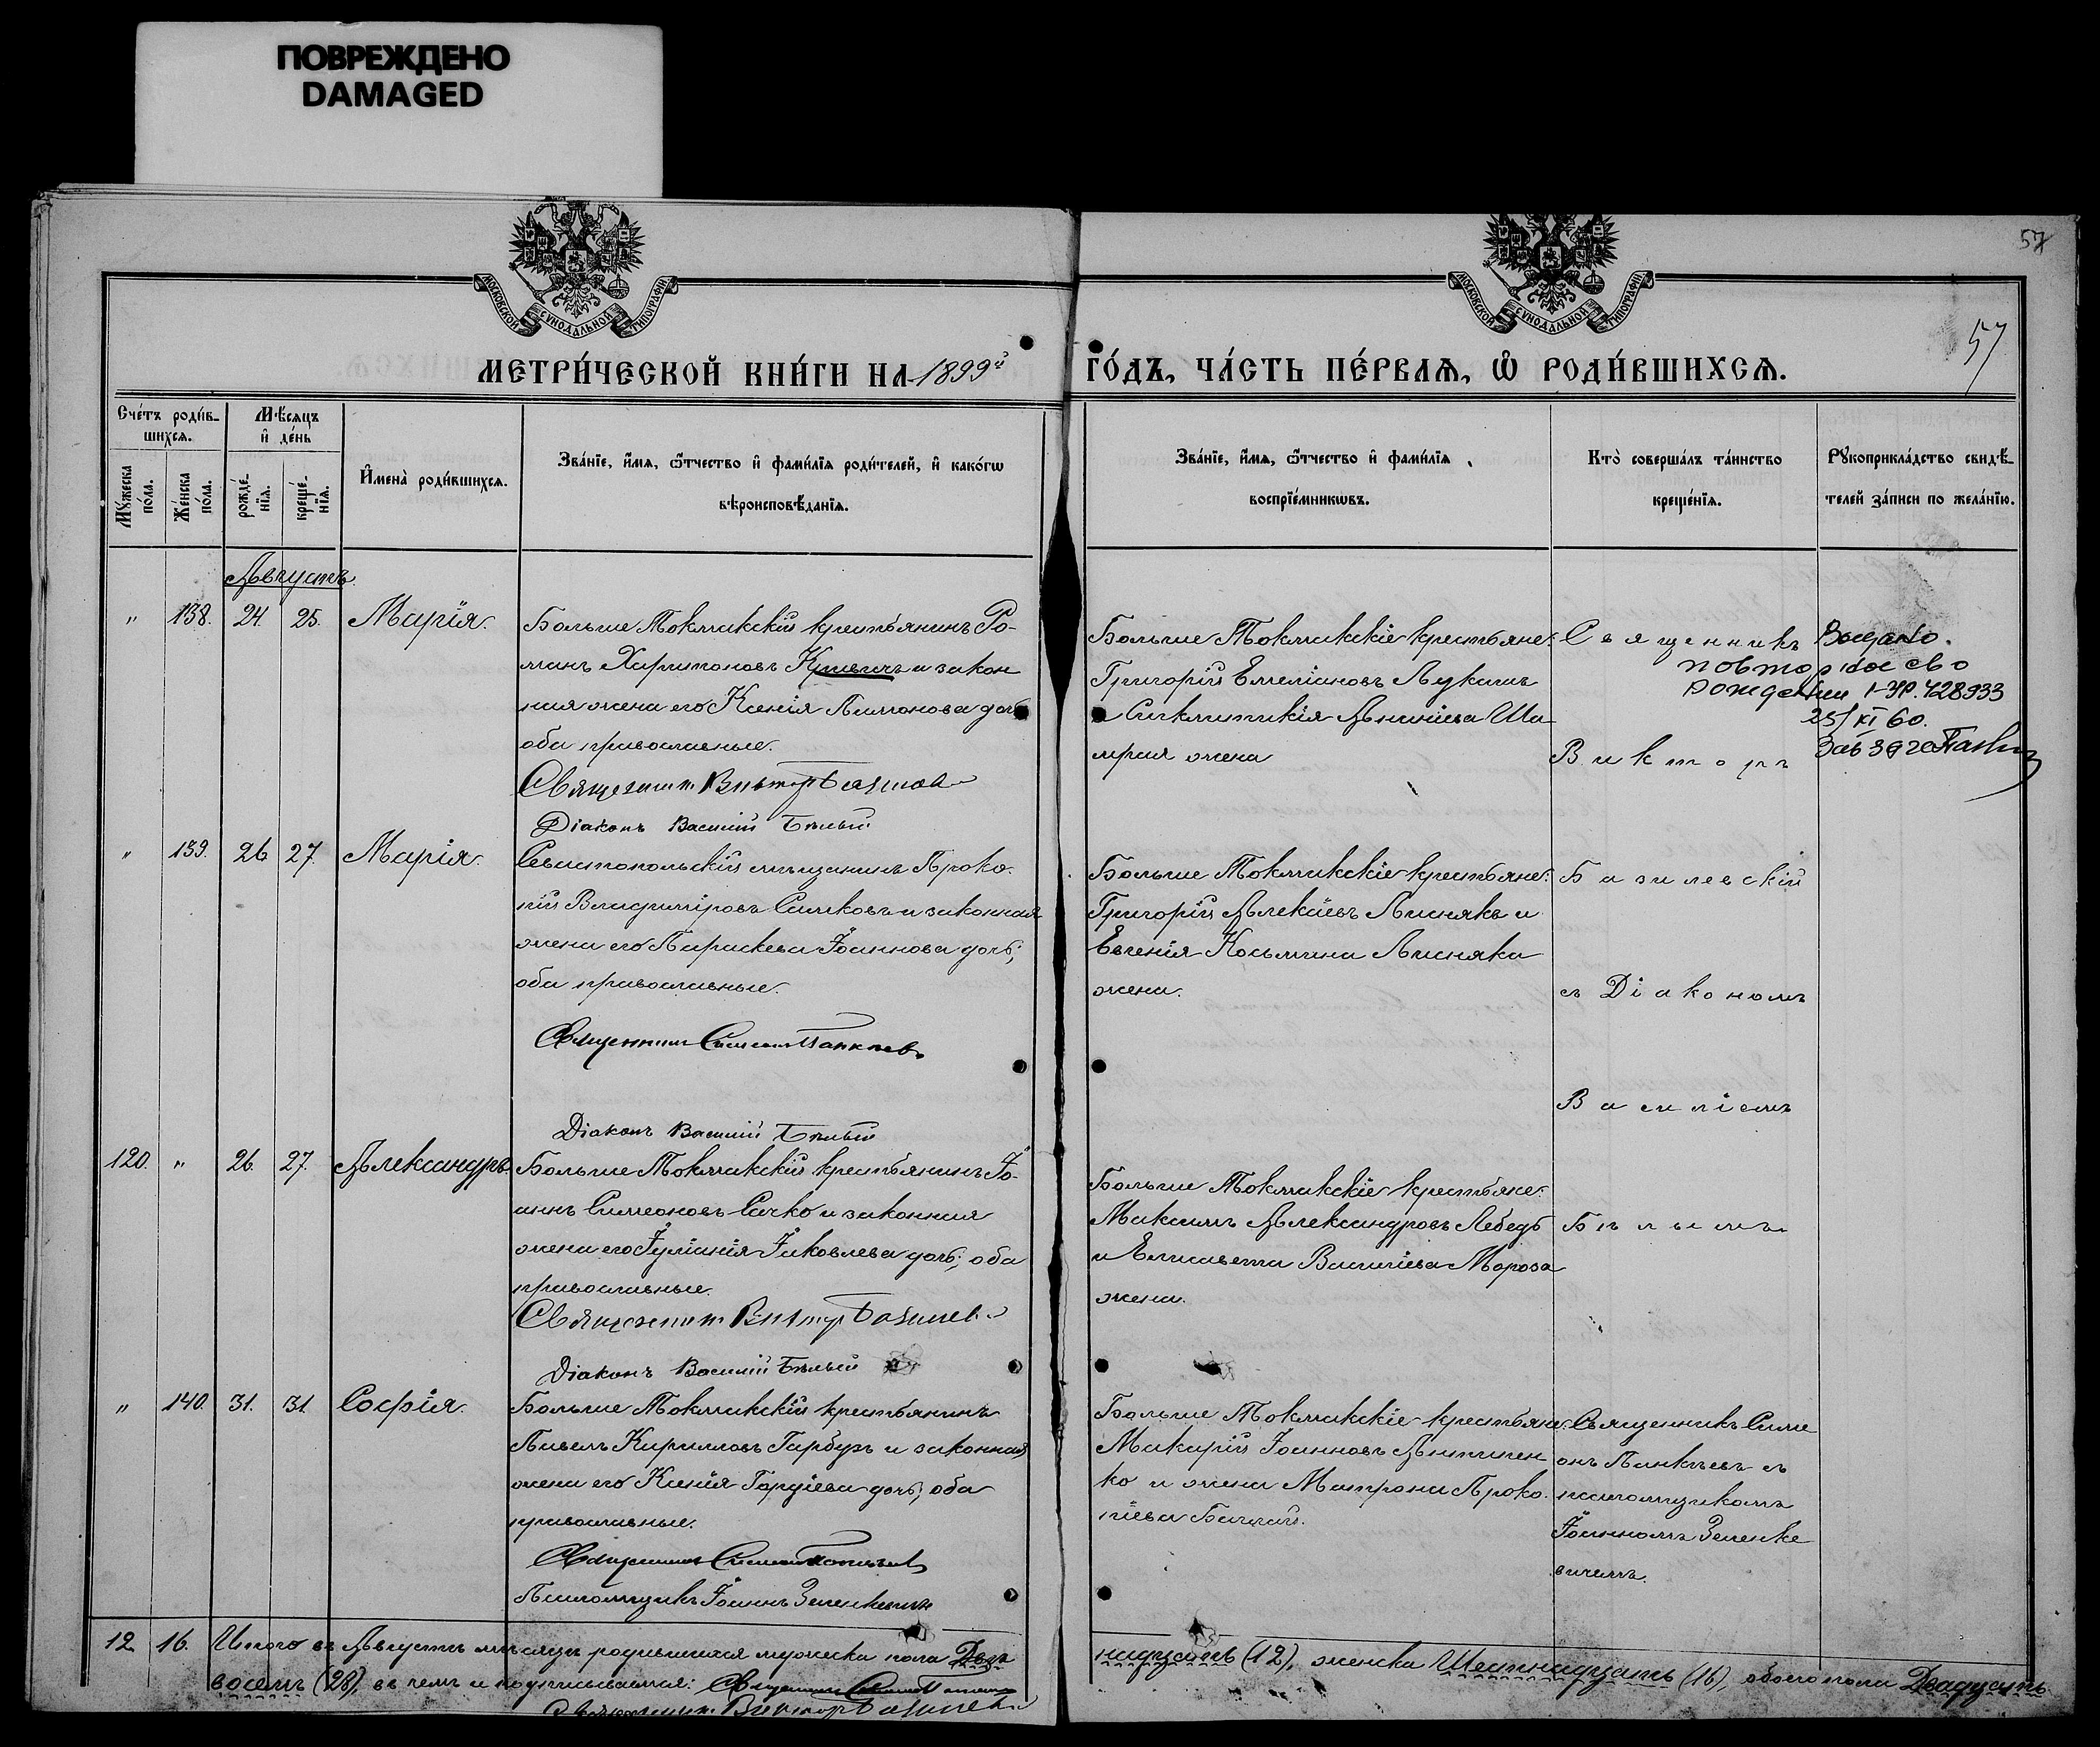 ПОВРЕЖДЕНО
DAMAGED
57
57
МОСКОВСКОЙ СѴНОДАЛЬНОЙ ТИПОГРАФІИ
МОСКОВСКОЙ СѴНОДАЛЬНОЙ ТИПОГРАФІИ
МЕТРИ́ЧЕСКОЙ КНИ́ГИ НА 1899й ГО́ДЪ, ЧА́СТЬ ПЕ́РВАѦ, Ѡ҆ РОДИ́ВШИХСѦ.
Сче́тъ роди́в-
шихсѧ.
Мѣ́сяцъ
и҆ де́нь
Мꙋ́жеска по́ла.
Же́нска по́ла.
рожде́-
нїѧ.
креще́-
нїѧ.
И҆мена̀ роди́вшихсѧ.
Зва́нїе, и҆́мѧ, ѻ҆́тчество и҆ фами́лїѧ роди́телей, и҆ како́гѡ
вѣроисповѣ́данїѧ.
Зва́нїе, и҆́мѧ, ѻ҆́тчество и҆ фами́лїѧ
воспрїе́мникѡвъ.
Кто̀ соверша́лъ та́инство
креще́нїѧ.
Рꙋкоприкла́дство свидѣ́-
телей за́писи по жела́нїю.
Августъ.
" 138. 24. 25. Марія.
Больше Токмакскій крестьянинъ Ро-
манъ Харитоновъ Кривичъ и закон
ная жена его Ксенія Лимонова дочь
оба православные.
Священник Виктор Базилев
Діаконъ Василій Бѣлый
Больше Токмакскіе крестьяне:
Григорій Емеліановъ Лукаш
и Синклитикія Ананіева Ша
мрая жена
Священникъ
Викторъ
повторное сво
рождении 1-ЭР. 428933
25/XI 60.
" 139. 26. 27. Марія.
Севастопольскій мѣщанинъ Проко-
пій Владиміровъ Симковъ и законная
жена его Параскева Іоаннова дочь;
оба православные.
Священник Симеон Панкеев
Діаконъ Василій Бѣлый
Больше Токмакскіе крестьяне:
Григорій Алексіевъ Лисняк и
Евгенія Косьмина Лисняка
жена.
Базилевскій
съ Діакономъ
Василіемъ
120. " 26. 27. Александръ.
Больше Токмакскій крестьянинъ Іо-
аннъ Симеоновъ Сачко и законная
жена его Іуліанія Іаковлева дочь; оба
православные.
Священник Виктор Базилев
Діаконъ Василій Бѣлый
Больше Токмакскіе крестьяне:
Максимъ Александровъ Лебедь
и Елисавета Василіева Мороза
жена.
Бѣлымъ
" 140. 31. 31. Софія.
Больше Токмакскій крестьянинъ
Павелъ Кирилловъ Гарбузъ и законная
жена его Ксенія Гордіева дочь; оба
православные.
Священник Симеон Панкеев
Псаломщикъ Іоаннъ Зеленкевич
Больше Токмакскіе крестьяне:
Макарій Іоанновъ Антипен
ко и жена Матрона Проко-
піева
Священникъ Симе
онъ Панкѣевъ съ
псаломщикомъ
Іоанномъ Зеленке
вичемъ.
12 16. Итого въ Августѣ мѣсяцѣ родившихся мужеска пола Двѣ
надцать (12), женска Шестнадцать (16), обоего пола Двадцать
восемь (28), въ чемъ и подписываемся: Священник Симеон Панкеев
Священник Виктор Базилев